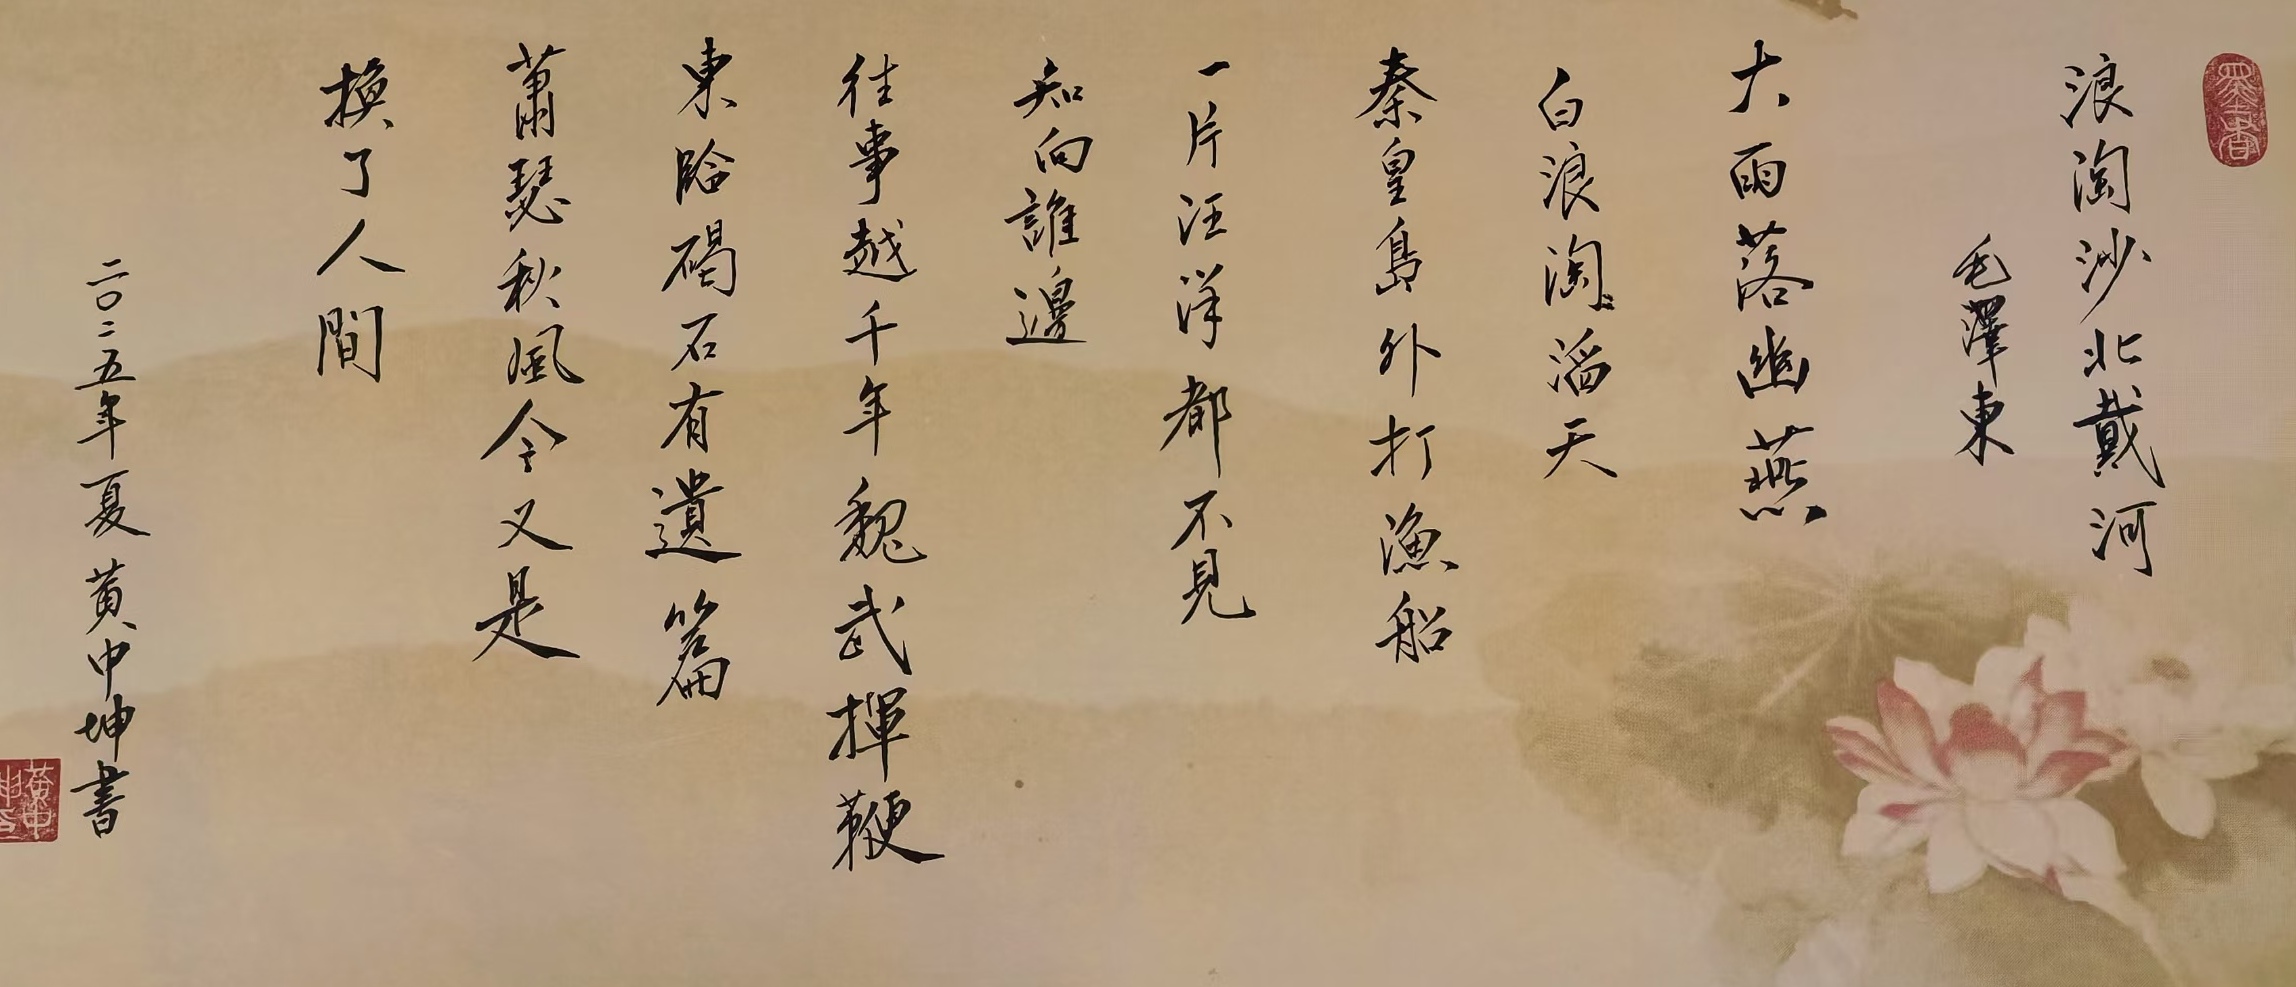 墨香
浪淘沙北戴河
毛澤東
大雨落幽燕
白浪淘〻滔天
秦皇島外打漁船
一片汪洋都不見
知向誰邊
往事越千年魏武揮鞭
東臨碣石有遺篇
蕭瑟秋風今又是
換了人間
二〇二五年夏黃中坤書
黃中坤